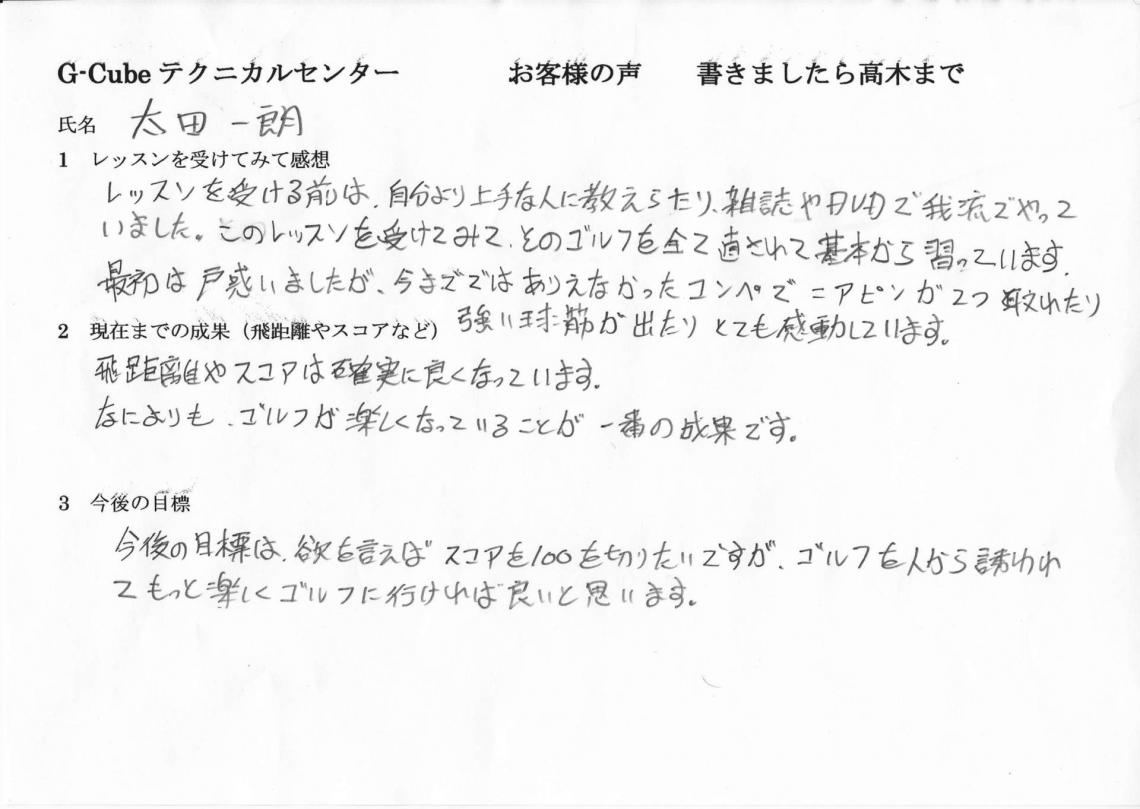 G-Cube テクニカルセンター お客様の声 書きましたら高木まで
氏名 太田 一朗
1 レッスンを受けてみて感想
レッスンを受ける前は、自分より上手な人に教えらたり、雑誌やDVDで我流でやって
いました。このレッスンを受けてみて、そのゴルフを全て直されて基本から習っています。
最初は戸惑いましたが、今までではありえなかったコンペでニアピンが2つ取れたり
強い球筋が出たりとても感動しています。
2 現在までの成果(飛距離やスコアなど)
飛距離やスコアは確実に良くなっています。
なによりも、ゴルフが楽しくなっていることが一番の成果です。
3 今後の目標
今後の目標は、欲を言えばスコアを100を切りたいですが、ゴルフを人から誘われ
てもっと楽しくゴルフに行ければ良いと思います。